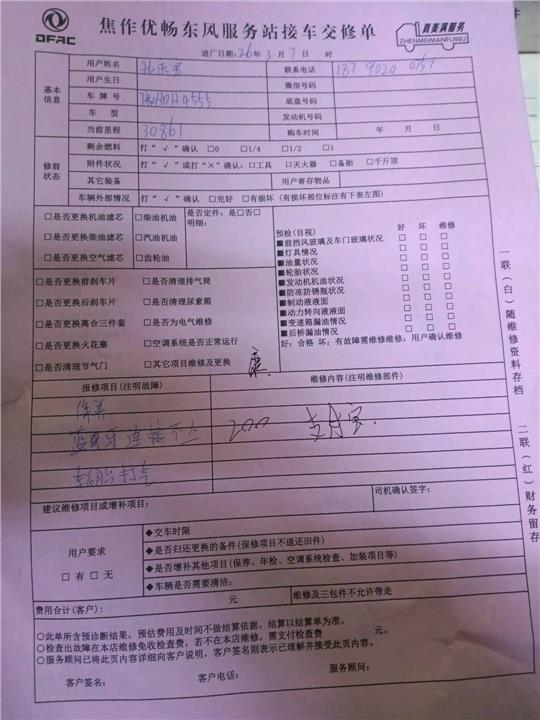 DFAC
焦作优畅东风服务站接车交修单
真美满服务
ZHENMEIMANFUWU
进厂日期:26年3月7日 时
基本信息
用户姓名 联系电话
用户生日 微信号码
车牌号 豫HDH4555 底盘号码
车型 发动机号码
当前里程 30861 购车时间 年 月 日
修前状态
剩余燃料 打“√”确认 □0 □1/4 □1/2 □1
附件状况 打“√”或打“×”确认:□工具 □灭火器 □备胎 □千斤顶
其它装备 用户寄存物品
车辆外部情况 打“√”确认 □完好 □有损坏(有损坏部位标注有下表左图)
□是否更换机油滤芯 □柴油机油 是否定件:是□否□
明细:
□是否更换柴油滤芯 □汽油机油
□是否更换空气滤芯 □齿轮油
□是否更换前刹车片 □是否清理排气筒
□是否更换后刹车片 □是否清理尿素箱
□是否更换离合三件套 □是否为电气维修
□是否更换火花塞 □空调系统是否正常运行
□是否清理节气门 □其它项目维修及更换
预检(目视) 好 坏 维修
■前挡风玻璃及车门玻璃状况 □ □ □
■灯具情况 □ □ □
■油量状况 □ □ □
■轮胎状况 □ □ □
■发动机机油状况 □ □ □
■防冻防锈瓶状况 □ □ □
■制动液液面 □ □ □
■动力转向液液面 □ □ □
■变速箱漏油情况 □ □ □
■后桥漏油情况 □ □ □
好:合格 坏:有故障需维修维修:用户确认维修
报修项目(注明故障) 维修内容(注明维修部件)
保养
蓝牙连接不上 200 支付宝
轮胎打气
建议维修项目或增补项目: 司机确认签字:
用户要求
□有 □无
◆交车时限
◆是否归还更换的备件(保修项目不退还旧件)
◆是否增补其他项目(保养、年检、空调系统检查、加装项目等)
◆车辆是否需要清洁:
费用合计(客户): 元 维修及三包件不允许带走
○此单所含预诊断结果,预估费用及时间不做结算依据,结算以结算单为准。
○检查出故障在本店维修免收检查费,若不在本店维修,需支付检查费 元。
○服务顾问已将此页内容详细向客户说明,客户签名则表示已理解并接受此页内容。
客户签名: 客户电话: 服务顾问:
一联(白)随维修资料存档
二联(红)财务留存